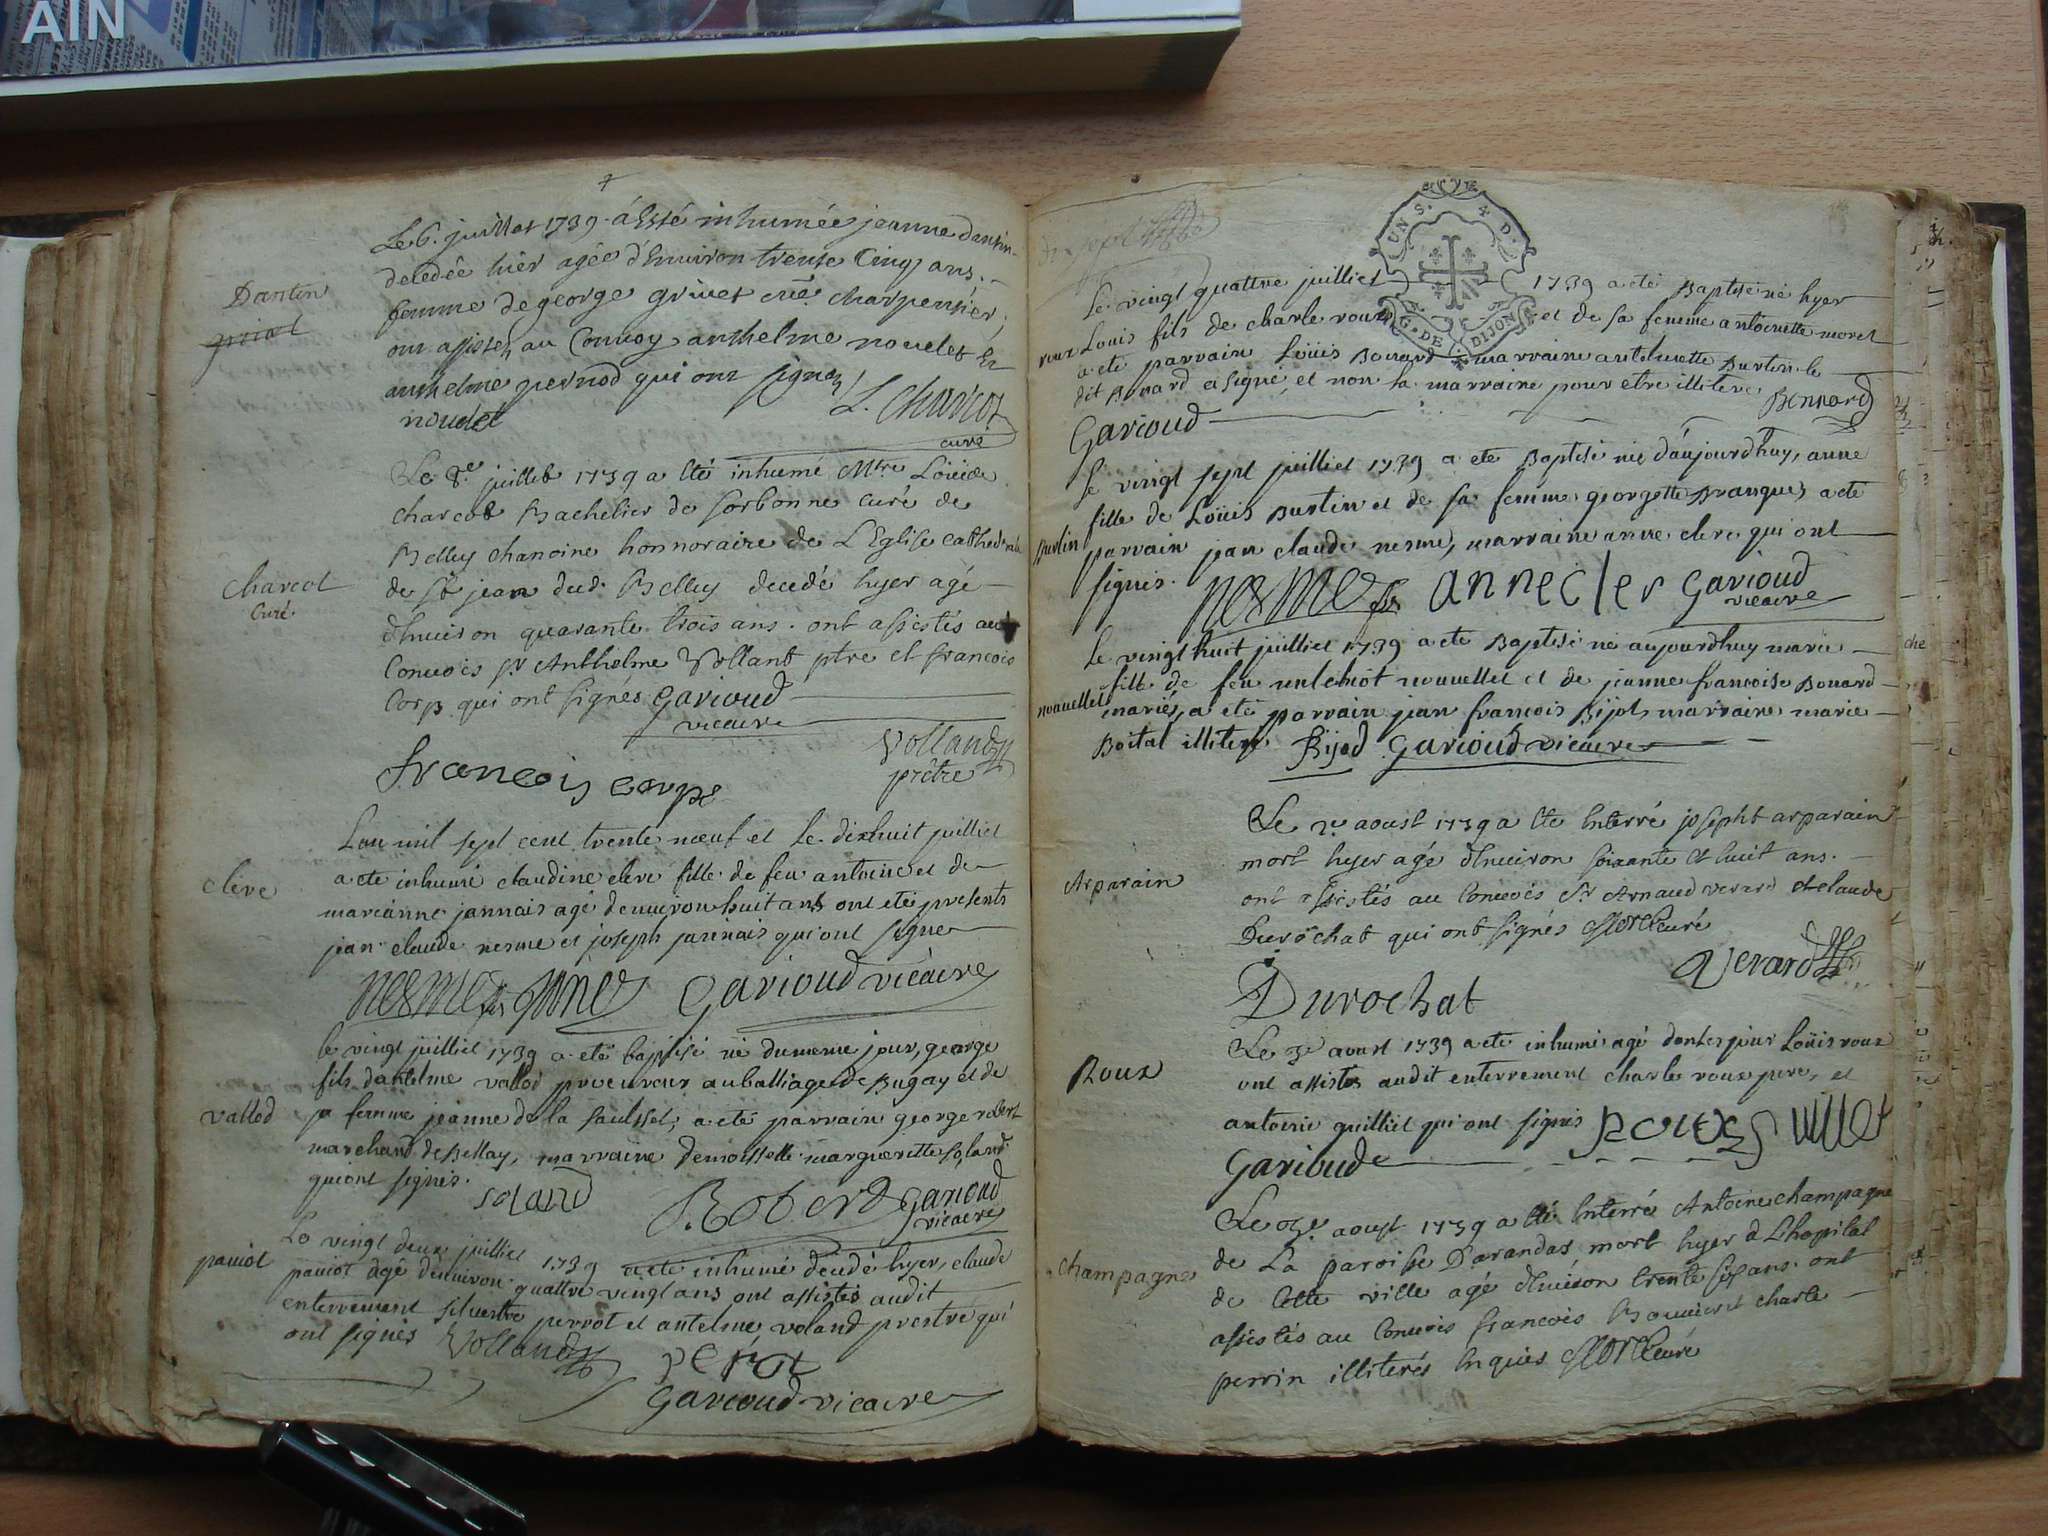 AIN
Le 6. juillet 1739. a Esté inhumée jeanne dantin
decedée hier agée d'Environ trente Cinq ans.
Dantin
femme de george grivet charpentier,
ont assistez au Convoy anthelme nouelet Et
anthelme pernod qui ont signez
nouelet L. Charcot
curé
Le 8.e juillet 1739 a Eté inhumé Mtre Loüis
charcot Bachelier de sorbonne curé de
Belley chanoine honnoraire de L'Eglise cathedrale
Charcot
Curé
de St jean dud. Belley decedé hyer agé
d'Enuiron quarante trois ans. ont assistés au
Conuois Sr Anthelme Vollant ptre et francois
Corps qui ont signés Garioud
vicaire
Volland
prêtre
francois corps
Lan mil sept cent trente neuf et le dixhuit juilliet
clére
a ete inhumé claudine clere fille de feu antoine et de
marianne jannais agé denuiron huit ans ont eté presents
jean claude nesme et joseph jannais qui ont signe
nesme Garioud vicaire
le vingt juilliet 1739 a eté baptisé né du meme jour, george
fils dantelme vallod procureur au balliage de Bugay et de
valled
sa femme jeanne de la saulsset, a eté parrain george robert
marchand de Bellay, marraine demoisselle margueritte soland
qui ont signés.
soland Robert Garioud
vicaire
Le vingt deux juilliet 1739 a eté inhumé decedé hyer, claude
pauiot
pauiot agé denuiron quattre vingt ans ont assistés audit
enterrement siluestre perrot et antelme voland prestre qui
ont signés Volland perot
Garioud vicaire
UN S. D.
G. DE DIJON
Le vingt quattre juilliet 1739 a eté Baptisé né hyer
roux
Louis fils de charle roux et de sa femme antoinette moret
a eté parrain Loüis Bonard marraine antoinette Burtin le
dit Bonard a signé, et non la marraine pour etre illitere Bonnard
Garioud
Le vingt sept juilliet 1739 a ete Baptisé née d'aujourdhuy, anne
fille de Loüis Burtin et de sa femme georgette Branques a eté
Burtin
parrain jean claude nesme, marraine anne clere qui ont
signés. nesme anne cler Garioud
vicaire
Le vingt huit juilliet 1739 a ete Baptisé né aujourdhuy marie
fille de feu nouuellet et de jeanne francoise Bonard
nouuellet
mariés, a eté parrain jean francois Bijot, marraine marie
Boital illitere Bijod Garioud vicaire
Le 2.e aoust 1739 a Eté Enterré joseph arparain
mort hyer agé d'Enuiron soixante Et huit ans.
Arparain
ont assistés au Conuois Sr Arnaud verard et claude
Durochat qui ont signés curé
Verard
Durochat
Le 3e aoust 1739 a eté inhumé agé donze jour Loüis roux
Roux
ont assistés audit enterrement charle roux pere, et
antoine guilliet qui ont signés roux
Garioud
Le aoust 1739 a Eté Enterré Antoine champagne
de La paroisse Darandas mort hyer a L'hopital
champagne
de Cette ville agé d'Enuiron trente six ans. ont
assistés au Conuois francois Et charle
perrin illiterés Enquis curé